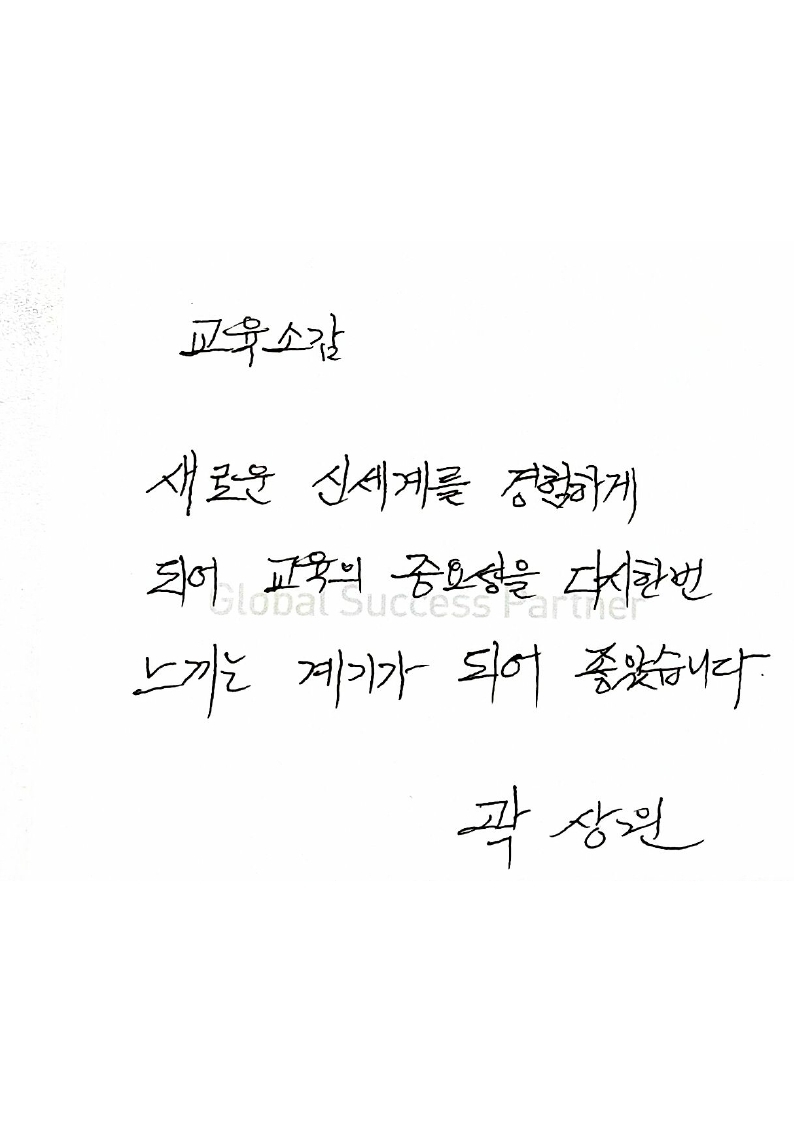 교육소감
새로운 신세계를 경험하게
되어 교육의 중요성을 다시한번
Global Success Partner
느끼는 계기가 되어 좋았습니다.
곽 상원